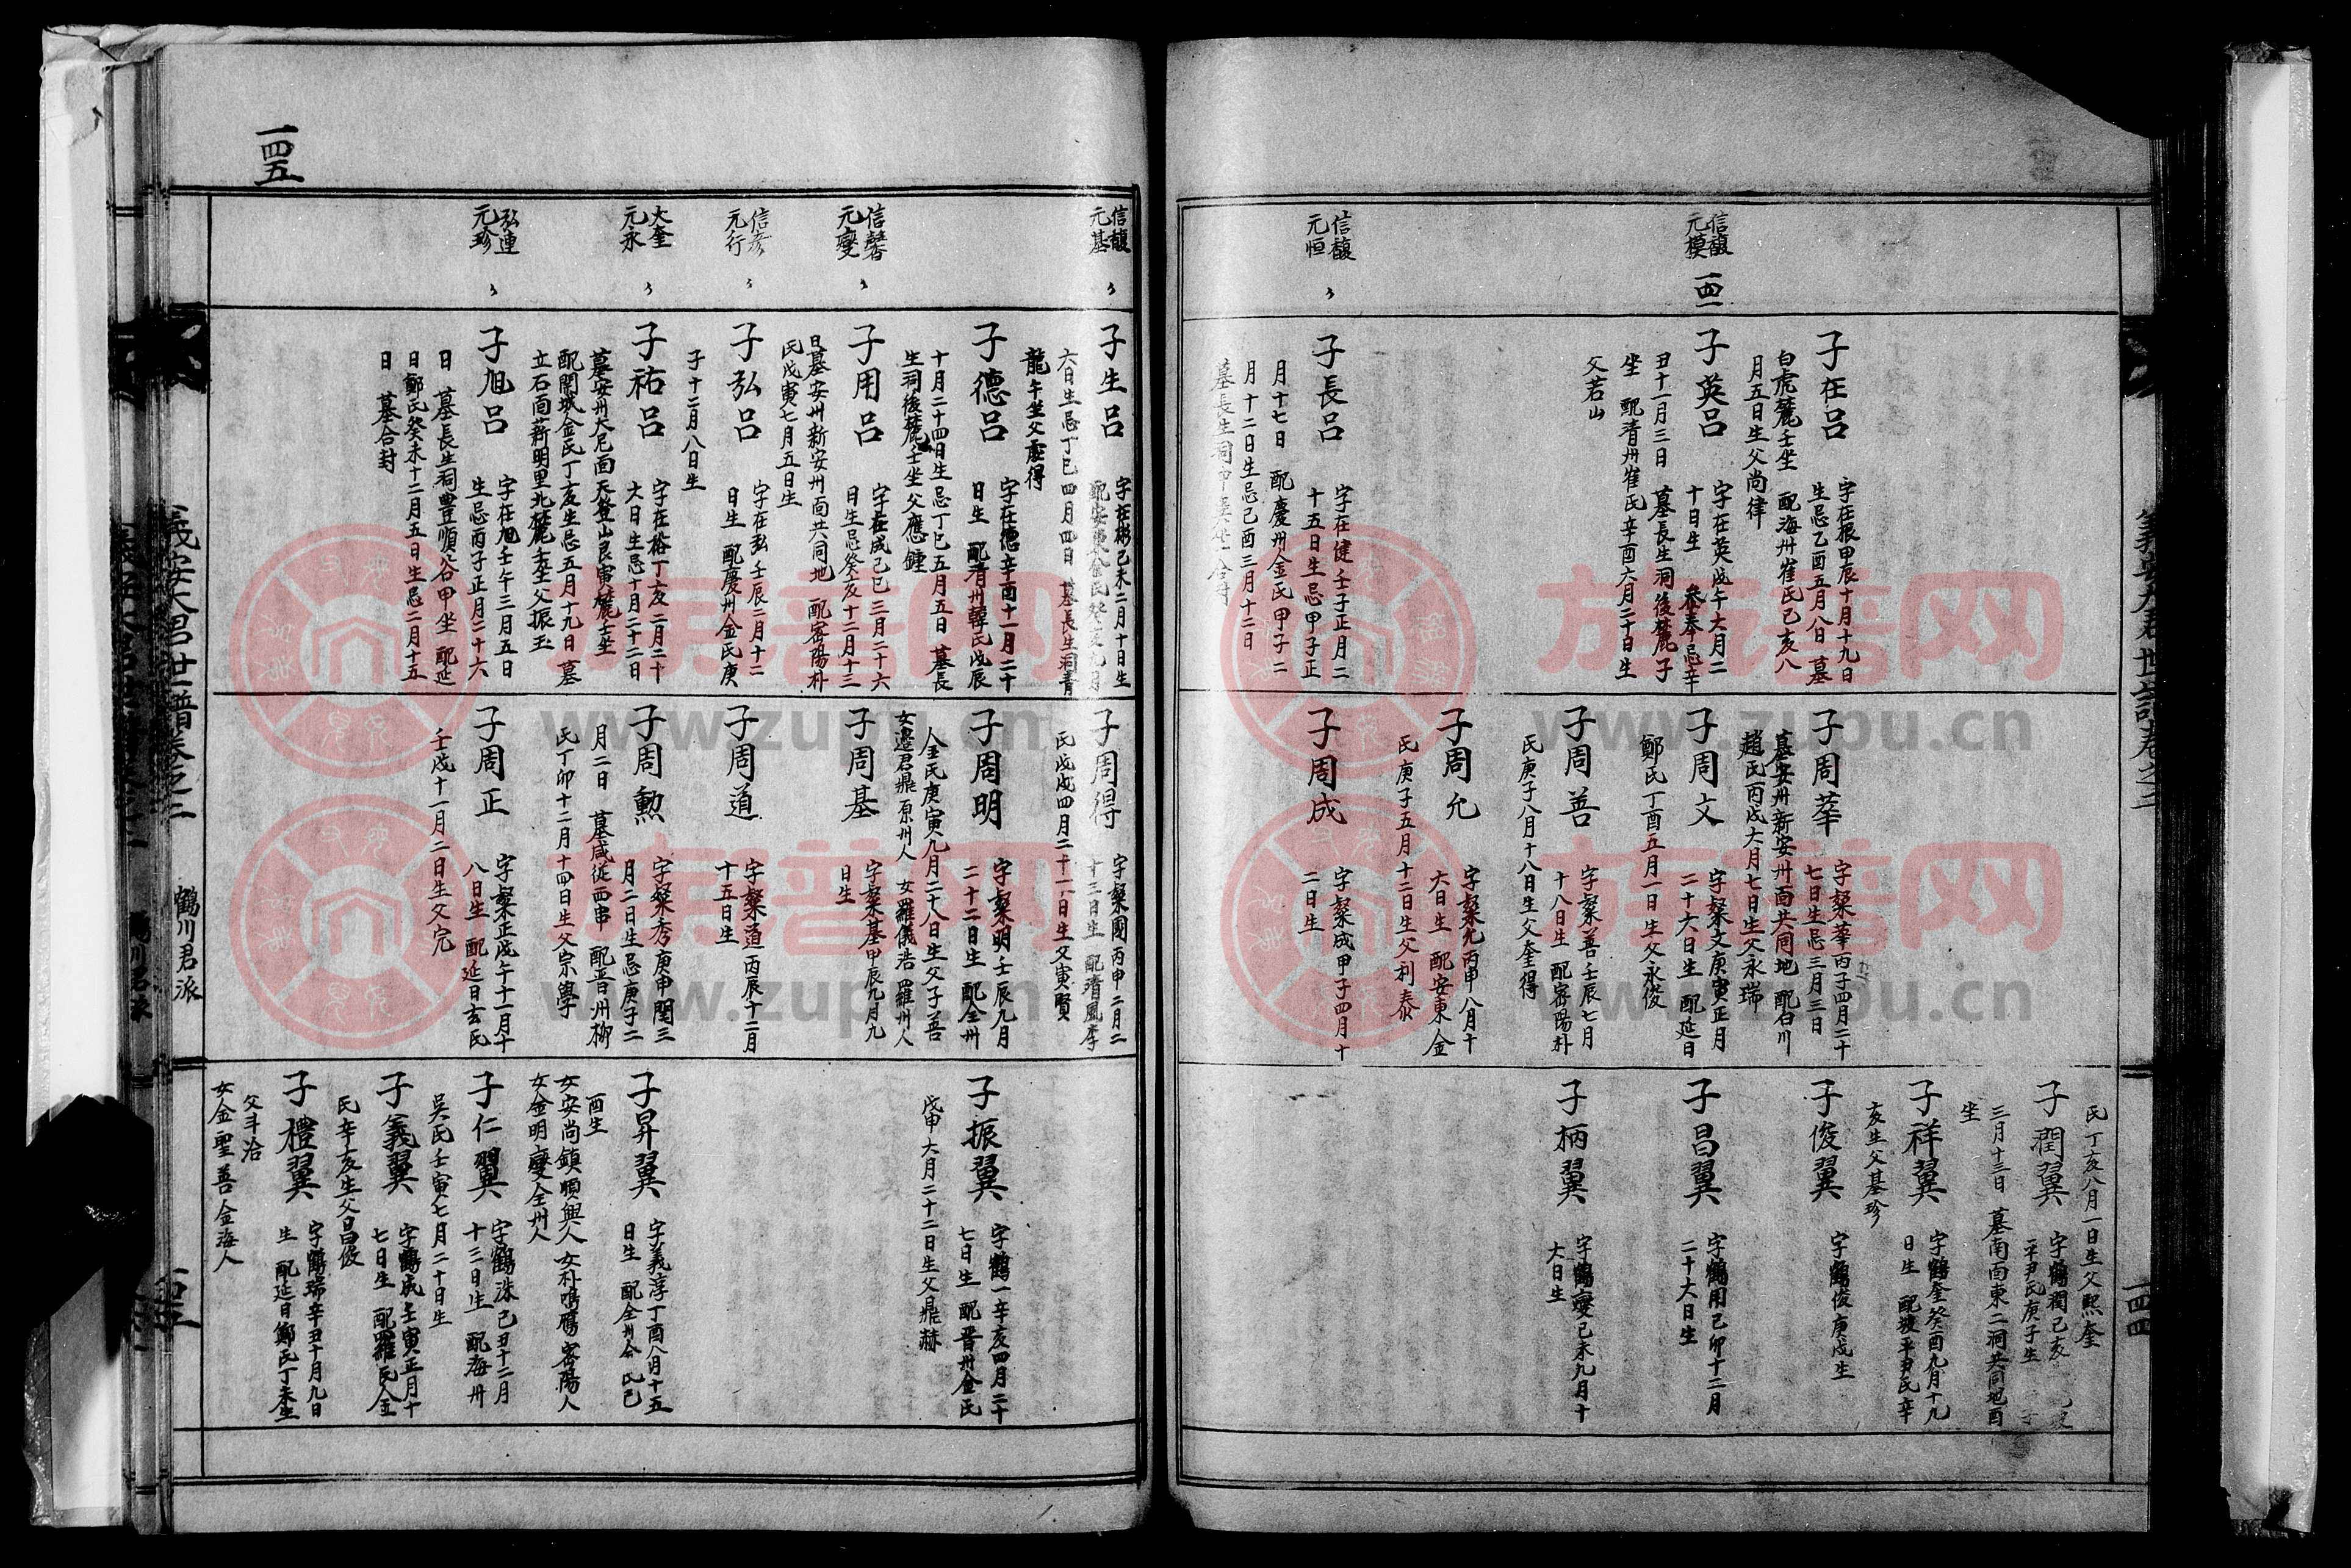 信馥
元模
一四一
信馥
元恒
子在呂
字在振甲辰十月十九日
生忌乙酉五月八日 墓
白虎麓壬坐 配海州崔氏己亥八
月五日生父尚律
子英呂
字在英戊午六月二
十日生 參奉忌辛
丑十一月三日 墓長生洞後麓子
坐 配清州崔氏辛酉六月二十日生
父若山
子長呂
字在健壬子正月二
十五日生忌甲子正
月十七日 配慶州金氏甲子二
月十二日生忌己酉三月十二日
子周莘
字粲莘丙子四月二十
七日生忌三月三日
墓安州新安州面共同地 配白川
趙氏丙戌六月七日生父永瑞
子周文
字粲文庚寅正月
二十六日生 配延日
鄭氏丁酉五月一日生父永俊
子周善
字粲善壬辰七月
十八日生 配密陽朴
氏庚子八月十八日生父奎得
子周允
字粲允丙申八月十
六日生 配安東金
氏庚子五月十二日生父利泰
子周成
字粲成甲子四月十
二日生
氏丁亥八月一日生父熙奎
子潤翼
字鶴潤己亥
平尹氏庚子生
三月十三日 墓南面東二洞共同地酉
坐
子祥翼
字鶴奎癸酉九月十九
日生 配坡平尹氏辛
亥生父基珍
子俊翼
字鶴俊庚戌生
子昌翼
字鶴用己卯十二月
二十六日生
子柄翼
字鶴燮己未九月十
六日生
一四四
一四五
信馥
元基
信馨
元燮
信彦
元行
大奎
元永
弘連
元珍
子生呂
字在彬己未二月十日生
六日生忌丁巳四月四日 墓長生洞青
龍午坐父慶得
子德呂
字在德辛酉十一月二十
日生 配清州韓氏戊辰
十月二十四日生忌丁巳五月五日 墓長
生祠後麓壬坐父應鍾
子用呂
字在成己巳三月二十六
日生忌癸亥十二月十三
日墓安州新安州面共同地 配密陽朴
氏戊寅七月五日生
子弘呂
字在弘壬辰二月十二
日生 配慶州金氏庚
子十二月八日生
子祐呂
字在裕丁亥二月二十
六日生忌十月二十二日
墓安州大尼面天登山艮寅麓壬坐
配開城金氏丁亥生忌五月十九日 墓
立石面薪明里北麓壬坐父振玉
子旭呂
字在旭壬午三月五日
生忌丙子正月二十六
日 墓長生祠豊順谷甲坐 配延
日鄭氏癸未十二月五日生忌二月十五
日 墓合封
子周得
字粲國丙申二月二
十三日生 配清風李
氏戊戌四月二十一日生父寅賢
子周明
字粲明壬辰九月
二十二日生 配全州
金氏庚寅九月二十八日生父子善
女邊君鼎原州人 女羅儀浩羅州人
子周基
字粲基甲辰九月九
日生
子周道
字粲道丙辰十二月
十五日生
子周勲
字粲秀庚申閏三
月二日生忌庚子二
月二日 墓咸從西串 配晋州柳
氏丁卯十二月十四日生父宗學
子周正
字粲正戊午十一月十
八日生 配延日玄氏
壬戌十一月二日生父完
子振翼
字鶴一辛亥四月二十
七日生 配晋州金氏
戊申六月二十二日生父鼎赫
子昇翼
字義淳丁酉八月十五
日生 配全州金氏己
酉生
女安尚鎮順興人 女朴鳴鷹密陽人
女金明燮全州人
子仁翼
字鶴洙己丑十二月
十三日生 配海州
吳氏壬寅七月二十日生
子義翼
字鶴成壬寅正月十
七日生 配羅氏金
氏辛亥生父昌俊
子禮翼
字鶴瑞辛丑十月九日
生 配延日鄭氏丁未生
父斗洽
女金聖善金海人
義安大君世譜卷之二
鶴川君派
族譜网
www.zupu.cn